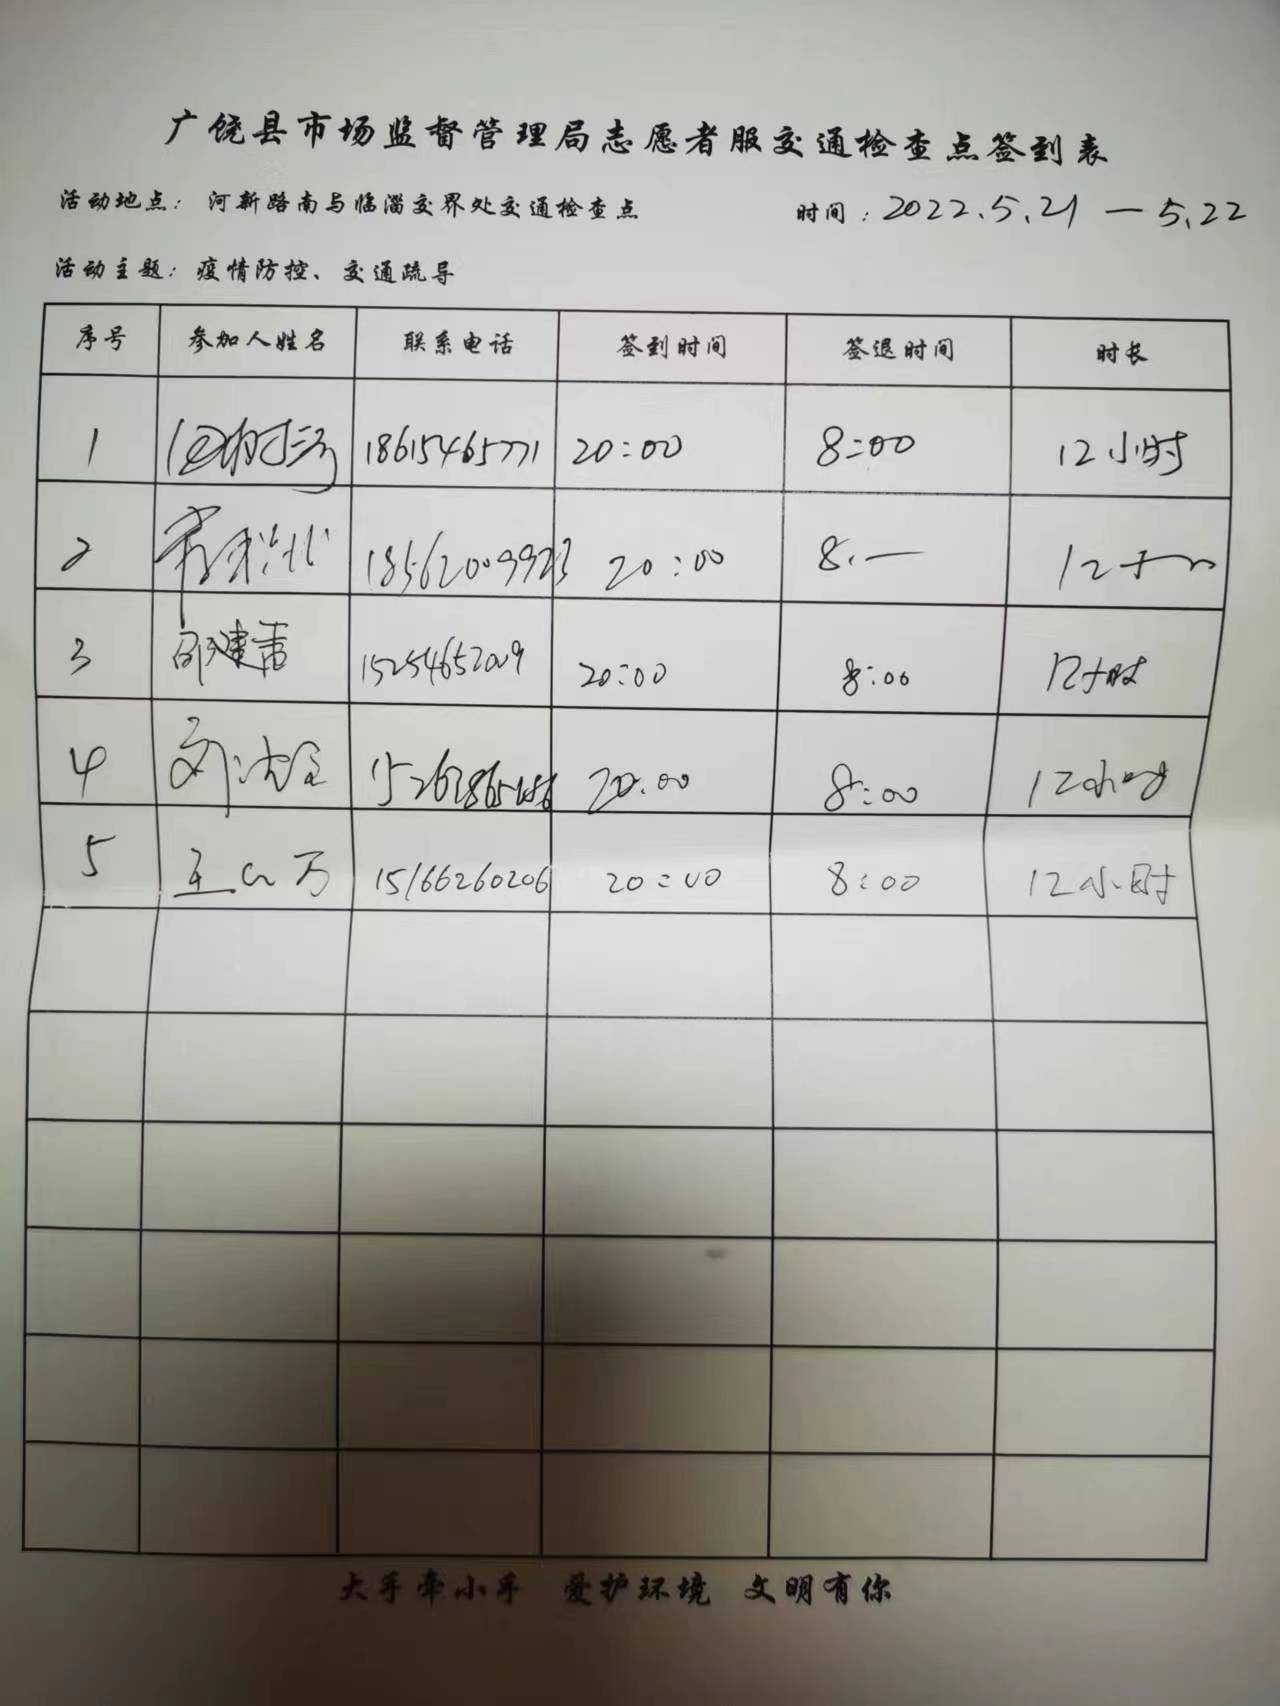 广饶县市场监督管理局志愿者服交通检查点签到表
活动地点：河新路南与临淄交界处交通检查点 时间：2022.5.21—5.22
活动主题：疫情防控、交通疏导
序号 参加人姓名 联系电话 签到时间 签退时间 时长
1 18615465771 20:00 8:00 12小时
2 20:00 8.— 12
3 邵建 20:00 8:00 12小时
4 刘 20:00 8:00 12小时
5 王 万 15166260206 20:00 8:00 12小时
大手牵小手 爱护环境 文明有你